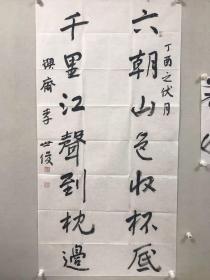 六朝山色收杯底
丁酉之伏月
千里江聲到枕邊
興齋 李世俊